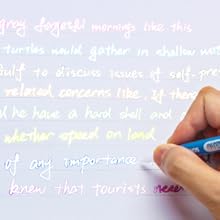 gray forgetful mornings like this
turtles would gather in shallow
to discuss issues of self-pres
related concerns like, if there
he have a hard shell and
whether speed on land
of any importance
knew that tourists never